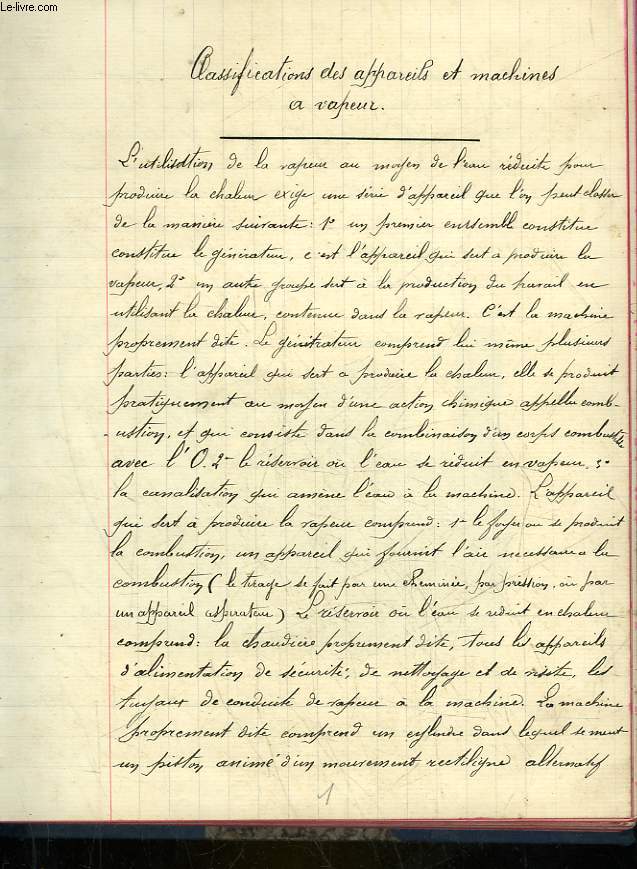 Le-livre.com
Classifications des appareils et machines
a vapeur.
L'utilisation de la vapeur au moyen de l'eau réduite pour
produire la chaleur exige une série d'appareil que l'on peut classer
de la manière suivante: 1° un premier ensemble constitue
constitue le générateur, c'est l'appareil qui sert a produire la
vapeur, 2° un autre groupe sert à la production du travail en
utilisant la chaleur, contenue dans la vapeur. C'est la machine
proprement dite. Le générateur comprend lui même plusieurs
parties: l'appareil qui sert a produire la chaleur, elle se produit
pratiquement au moyen d'une action chimique appellée comb-
-ustion, et qui consiste dans la combinaison d'un corps combustible
avec l'O. 2° le réservoir où l'eau se réduit en vapeur, 3°
la canalisation qui amène l'eau à la machine. L'appareil
qui sert à produire la vapeur comprend: 1° le foyer ou se produit
la combustion, un appareil qui fournit l'air necessaire a la
combustion (le tirage se fait par une cheminée, par pression, ou par
un appareil aspirateur) Le réservoir où l'eau se reduit en chaleur
comprend: la chaudière proprement dite, tous les appareils
d'alimentation de sécurité, de nettoyage et de visite, les
tuyaux de conduite de vapeur à la machine. La machine
proprement dite comprend un cylindre dans lequel se meut
un piston animé d'un mouvement rectiligne alternatif
1